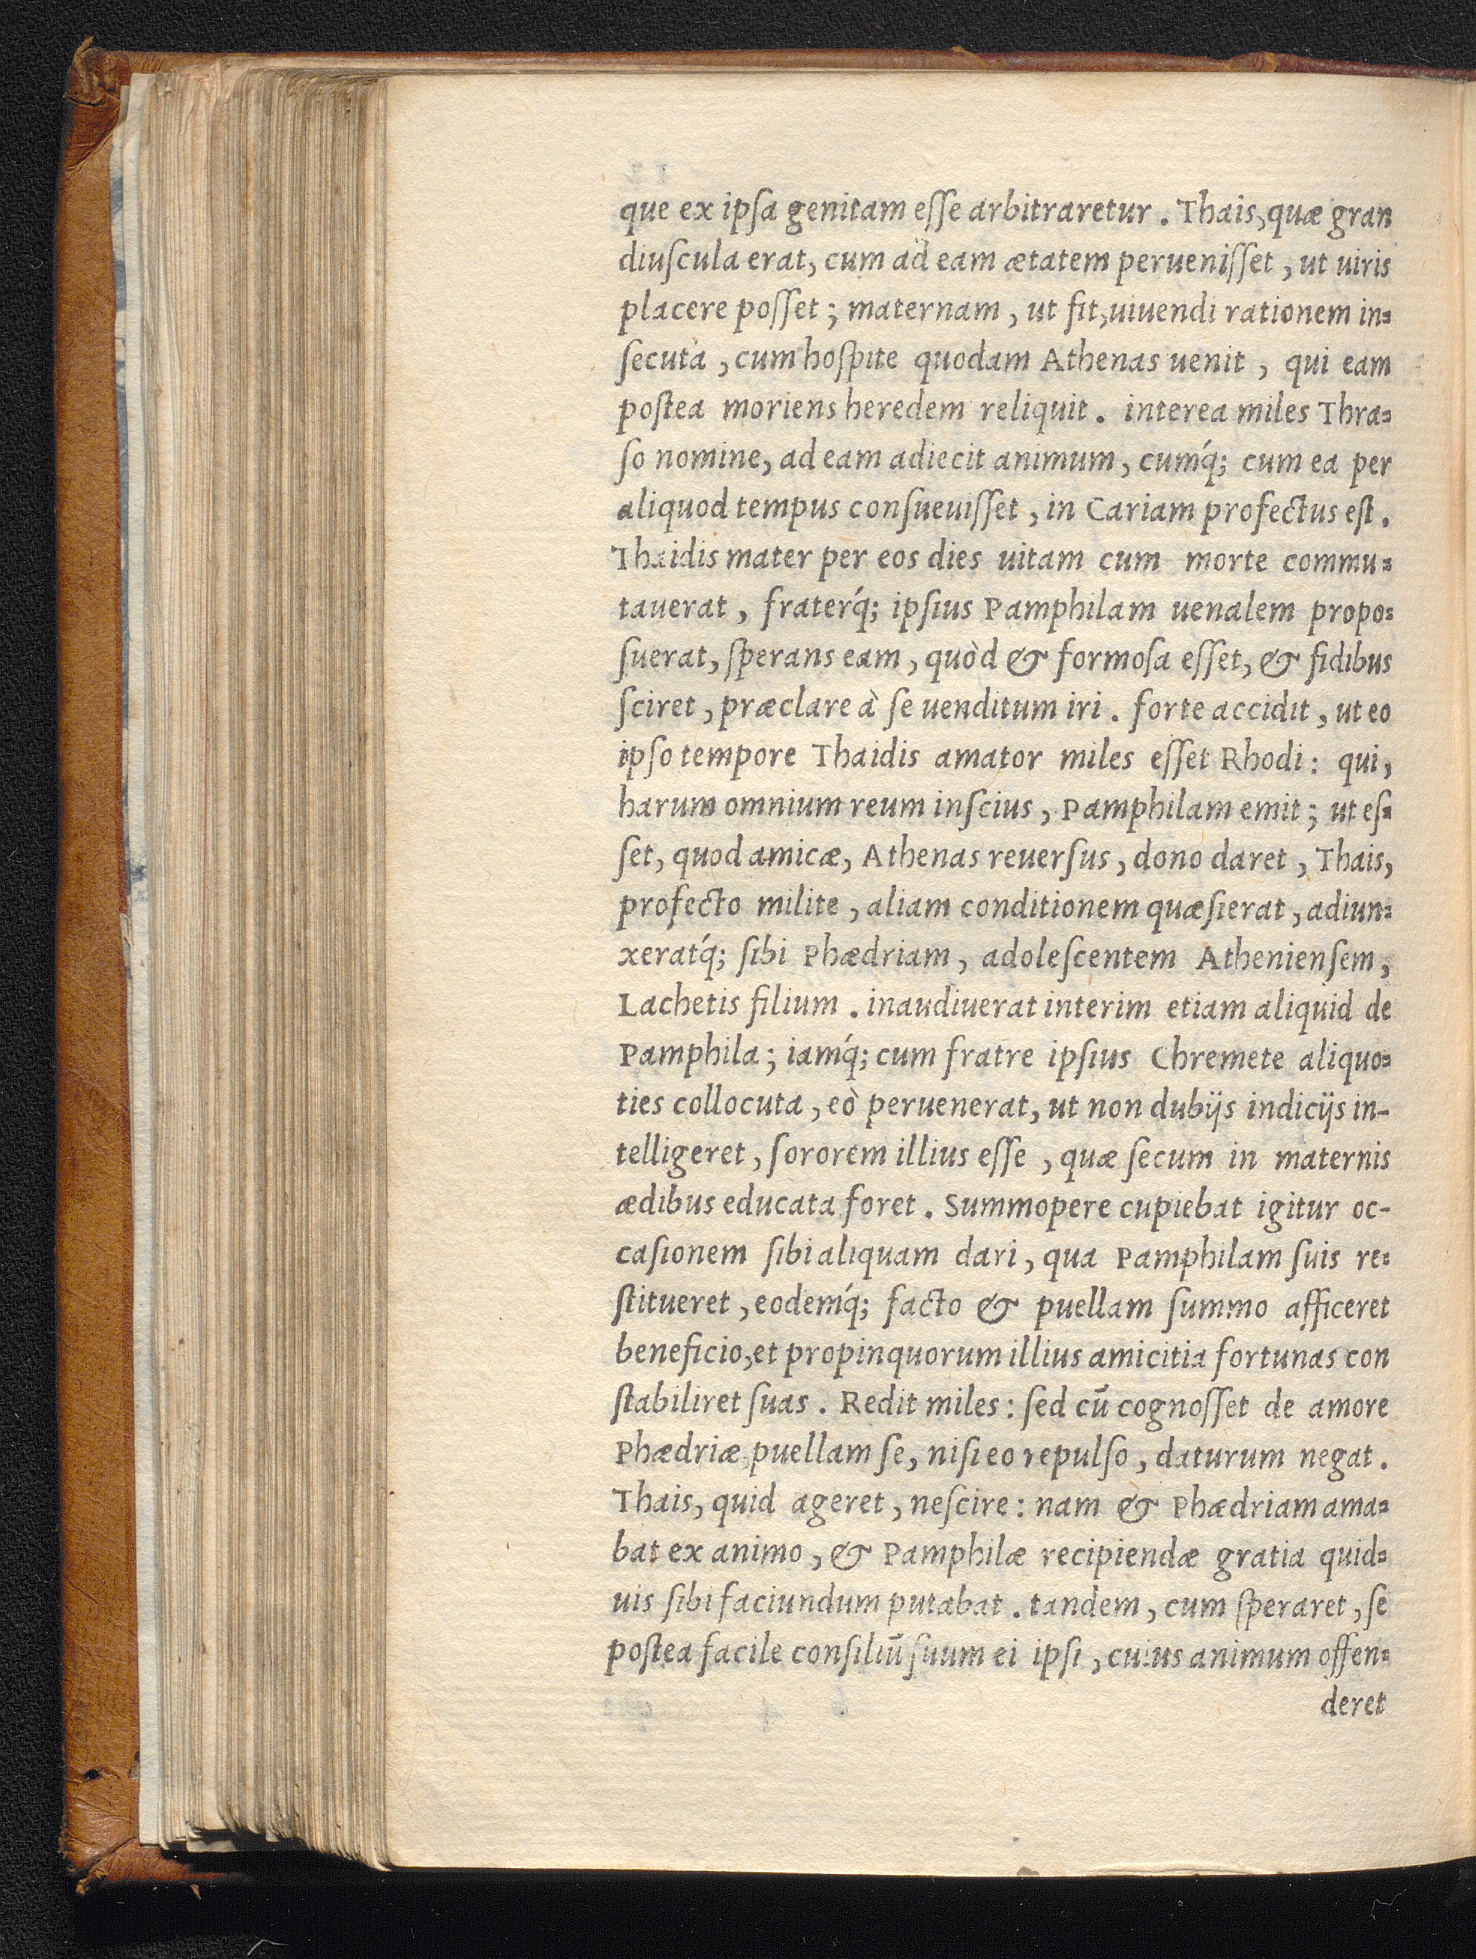 que ex ipſa genitam eſſe arbitraretur. Thais, quæ gran
diuſcula erat, cum ad eam ætatem perueniſſet, ut uiris
placere poſſet; maternam, ut fit, uiuendi rationem in=
ſecuta, cum hoſpite quodam Athenas uenit, qui eam
poſtea moriens heredem reliquit. interea miles Thra=
ſo nomine, ad eam adiecit animum, cumq́; cum ea per
aliquod tempus conſueuiſſet, in Cariam profectus eſt.
Thaidis mater per eos dies uitam cum morte commu=
tauerat, fraterq́; ipſius Pamphilam uenalem propo=
ſuerat, ſperans eam, quòd & formoſa eſſet, & fidibus
ſciret, præclare à ſe uenditum iri. forte accidit, ut eo
ipſo tempore Thaidis amator miles eſſet Rhodi: qui,
harum omnium reum inſcius, Pamphilam emit; ut eſ=
ſet, quod amicæ, Athenas reuerſus, dono daret, Thais,
profecto milite, aliam conditionem quæſierat, adiun=
xeratq́; ſibi Phædriam, adoleſcentem Athenienſem,
Lachetis filium. inaudiuerat interim etiam aliquid de
Pamphila; iamq́; cum fratre ipſius Chremete aliquo=
ties collocuta, eò peruenerat, ut non dubijs indicijs in-
telligeret, ſororem illius eſſe, quæ ſecum in maternis
ædibus educata foret. Summopere cupiebat igitur oc-
caſionem ſibi aliquam dari, qua Pamphilam ſuis re=
ſtitueret, eodemq́; facto & puellam ſummo afficeret
beneficio, et propinquorum illius amicitia fortunas con
ſtabiliret ſuas. Redit miles: ſed cū cognoſſet de amore
Phædriæ, puellam ſe, niſi eo repulſo, daturum negat.
Thais, quid ageret, neſcire: nam & Phædriam ama=
bat ex animo, & Pamphilæ recipiendæ gratia quid=
uis ſibi faciundum putabat. tandem, cum ſperaret, ſe
poſtea facile conſiliū ſuum ei ipſi, cuius animum offen=
deret